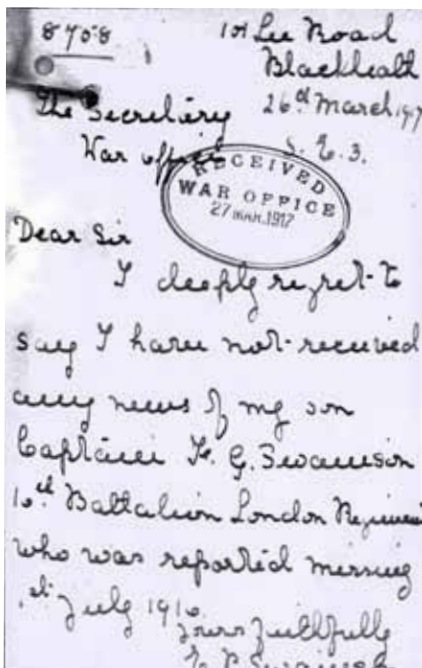 8708
101 Lee Road
Blackheath
26th March 1917
S.E.3.
The Secretary
War office
RECEIVED
WAR OFFICE
27 MAR.1917
Dear Sir
I deeply regret to
say I have not received
any news of my son
Captain F. G. Swainson
10th Battalion London Regiment
who was reported missing
1st July 1916.
Yours faithfully